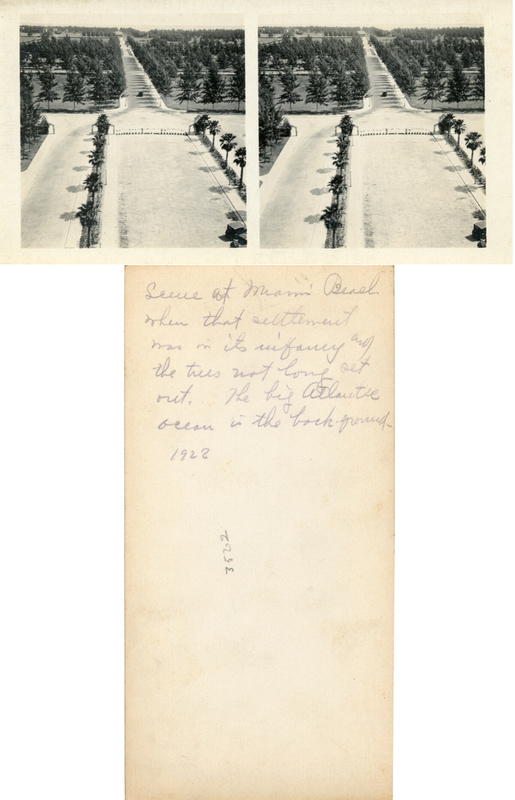 Scene at Miami Beach
when that settlement
was in its infancy and
the trees not long set
out. The big Atlantic
ocean is the back ground.
1928
3522